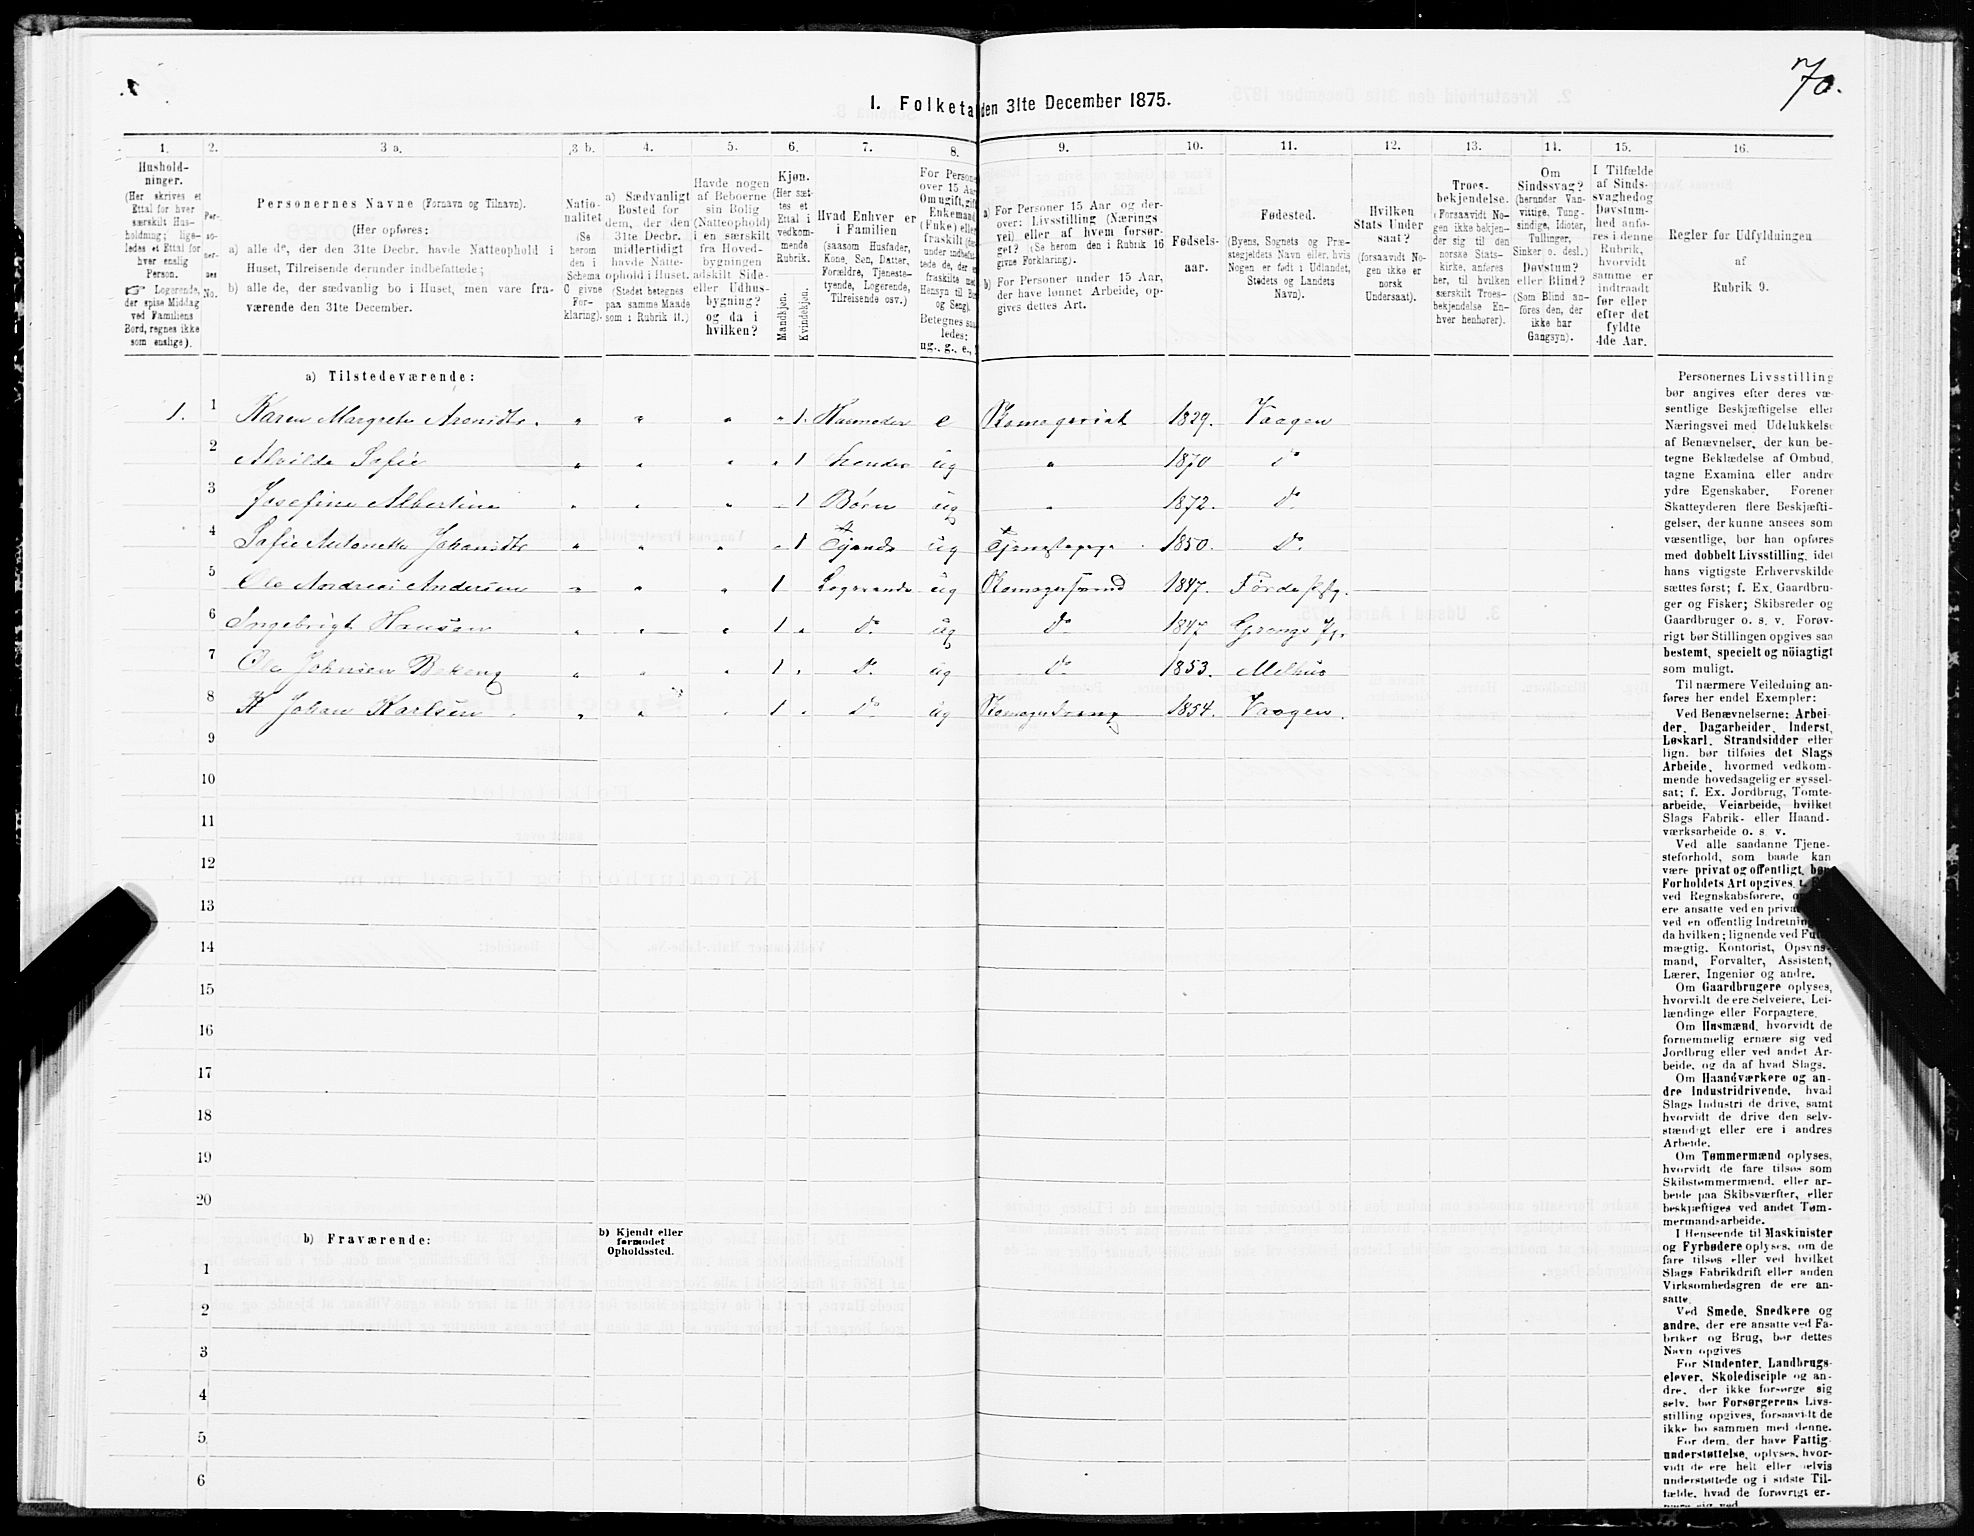 70.
1. Folketa den 31te December 1875.
1. 2. 3 a. 3 b. 4. 5. 6. 7. 8. 9. 10. 11. 12. 13. 14. 15. 16.
Hushold-
ninger.
(Her skrives et
Ettal for hver
særskilt Hus-
holdning; lige-
ledes et Ettal for
hver enslig
Person.
☞ Logerende,
der spise Middag
ved Familiens
Bord, regnes ikke
som enslige).
Per-
so-
ner-
nes
No.
Personernes Navne (Fornavn og Tilnavn).
(Her opføres:
a) alle de, der den 31te Decbr. havde Natteophold i
Huset, Tilreisende derunder indbefattede;
b) alle de, der sædvanlig bo i Huset, men vare fra-
værende den 31te December.
Natio-
nalitet
(Se
herom
den i
Schema
C givne
For-
klaring).
a) Sædvanligt
Bosted for
dem, der den
31te Decbr.
midlertidigt
havde Natte-
ophold i Huset.
(Stedet betegnes
paa samme Maade
som i Rubrik 11.)
Havde nogen
af Beboerne
sin Bolig
(Natteophold)
i en særskilt
fra Hoved-
bygningen
adskilt Side-
eller Udhus-
bygning?
og da i
hvilken?
Kjøn.
(Her sæt-
tes et
Ettal i
vedkom-
mende
Rubrik.
Mandkjøn.
Kvindekjøn.
Hvad Enhver er
i Familien
(saasom Husfader,
Kone, Søn, Datter,
Forældre, Tjeneste-
tyende, Logerende,
Tilreisende osv.)
For Persone
over 15 Aar
Om ugift, gift
Enkemand
(Enke) eller
fraskilt
under indbefat-
tede de, der
fraskilte med
Hensyn til Bo
og Seng).
Betegnes saa-
ledes:
ug., g., e.,
a) For Personer 15 Aar og der-
over: Livsstilling (Nærings
vei) eller af hvem forsør-
get? (Se herom den i Rubrik 16
givne Forklaring).
b) For Personer under 15 Aar,
der have lønnet Arbeide, op-
gives dettes Art.
Fødsels-
aar.
Fødested.
(Byens, Sognets og Præ-
stegjeldets Navn eller, hvis
Nogen er født i Udlandet,
Stedets og Landets
Navn).
Hvilken
Stats Under
saat?
(forsaavidt No-
gen ikke er
norsk
Undersaat).
Troes-
bekjendelse.
(Forsaavidt No-
gen ikke bekjen-
der sig til den
norske Stats-
kirke, anføres
her, til hvilken
særskilt Troes-
bekjendelse En-
hver henhører).
Om
Sindssvag?
(herunder Van-
vittige, Tung-
sindige, Idioter,
Tullinger,
Sinker o. desl.)
Døvstum?
eller Blind?
(Som Blind an-
føres den, der
ikke har
Gangsyn).
I Tilfælde
af Sinds-
svaghed og
Døvstum-
hed anfø-
res i denne
Rubrik,
hvorvidt
samme er
indtraadt
før eller
efter det
fyldte
4de Aar.
Regler for Udfyldningen
af
Rubrik 9.
a) Tilstedeværende:
1. 1 Karen Margrete Arentdtr. " " " " 1. Husmoder e 1829. Vaagen
2 Alvilde Sofie " " " " 1 hendes ug " 1870 Do
3 Josefine Albertine " " " 1 Børn ug " 1872. Do
4 Sofie Antonette Johansdtr " " " " 1 Tjende ug 1850. Do
5 Ole Andreas Andersen " " " 1 Logerende ug 1847. Førde
6 Ingebrigt Hansen " " " 1 " Do ug Do 1847 Grongs
7 Ole Johnsen " " " 1 " Do ug Do 1853. Melhus
8 K Johan Karlsen " " " 1 " Do ug 1854. Vaagen.
9
10
11
12
13
14
15
16
17
18
19
20
b) Fraværende:
b) Kjendt eller
formodet
Opholdssted.
1
2
3
4
5
6
Personernes Livsstilling
bør angives efter deres væ-
sentlige Beskjæftigelse eller
Næringsvei med Udelukkelse
af Benævnelser, der kun be-
tegne Beklædelse af Ombud,
tagne Examina eller andre
ydre Egenskaber. Forener
Skatteyderen flere Beskjæfti-
gelser, der kunne ansees som
væsentlige, bør han opføres
med dobbelt Livsstilling, idet
hans vigtigste Erhvervskilde
sættes først; f. Ex. Gaardbru-
ger og Fisker; Skibsreder og
Gaardbruger o. s. v. Forøv-
rigt bør Stillingen opgives saa
bestemt, specielt og nöiagtigt
som muligt.
Til nærmere Veiledning an-
føres her endel Exempler:
Ved Benævnelserne: Arbei-
der, Dagarbeider, Inderst,
Løskarl, Strandsidder eller
lign. bør tilføies det Slags
Arbeide, hvormed vedkom-
mende hovedsagelig er syssel-
sat; f. Ex. Jordbrug, Tomte-
arbeide, Veiarbeide, hvilket
Slags Fabrik- eller Haand-
værksarbeide o. s. v.
Ved alle saadanne Tjene-
steforhold, som baade kan
være privat og offentligt, bør
Forholdets Art opgives,
ved Regnskabsførere,
ere ansatte ved en priv
ved en offentlig Indretning
da hvilken; lignende ved Ful
mægtig, Kontorist, Opsyns-
mand, Forvalter, Assistent,
Lærer, Ingeniør og andre.
Om Gaardbrugere oplyses,
hvorvidt de ere Selveiere, Lei-
lændinge eller Forpagtere.
Om Husmænd, hvorvidt de
fornemmelig ernære sig ved
Jordbrug eller ved andet Ar-
beide, og da af hvad Slags.
Om Haandværkere og an-
dre Industridrivende, hvad
Slags Industri de drive, samt
hvorvidt de drive den selv-
stændigt eller ere i andres
Arbeide.
Om Tømmermænd oplyses,
hvorvidt de fare tilsøs som
Skibstømmermænd, eller ar-
beide paa Skibsværfter, eller
beskjæftiges ved andet Tøm-
mermandsarbeide.
I Henseende til Maskinister
og Fyrbødere oplyses, om de
fare tilsøs eller ved hvilket
Slags Fabrikdrift eller anden
Virksomhedsgren de ere an-
satte.
Ved Smede, Snedkere og
andre, der ere ansatte ved Fa-
briker og Brug, bør dettes
Navn opgives
For Studenter, Landbrugs-
elever, Skoledisciple og an-
dre, der ikke forsørge sig
selv, bør Forsørgerens Livs-
stilling opgives, forsaavidt de
ikke bo sammen med denne.
For dem, der have Fattig-
understøttelse, oplyses, hvor-
vidt de ere helt eller delvis
understøttede og i sidste Til-
fælde, hvad de forøvrigt er-
nære sig ved.